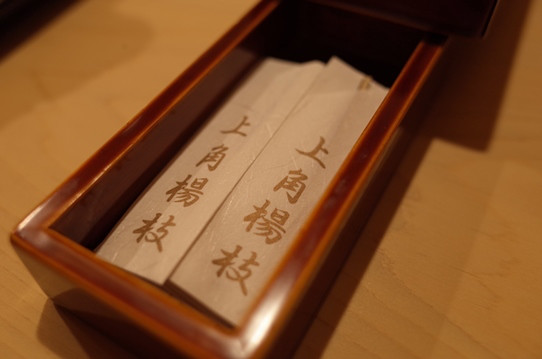 上角楊枝
上角楊枝